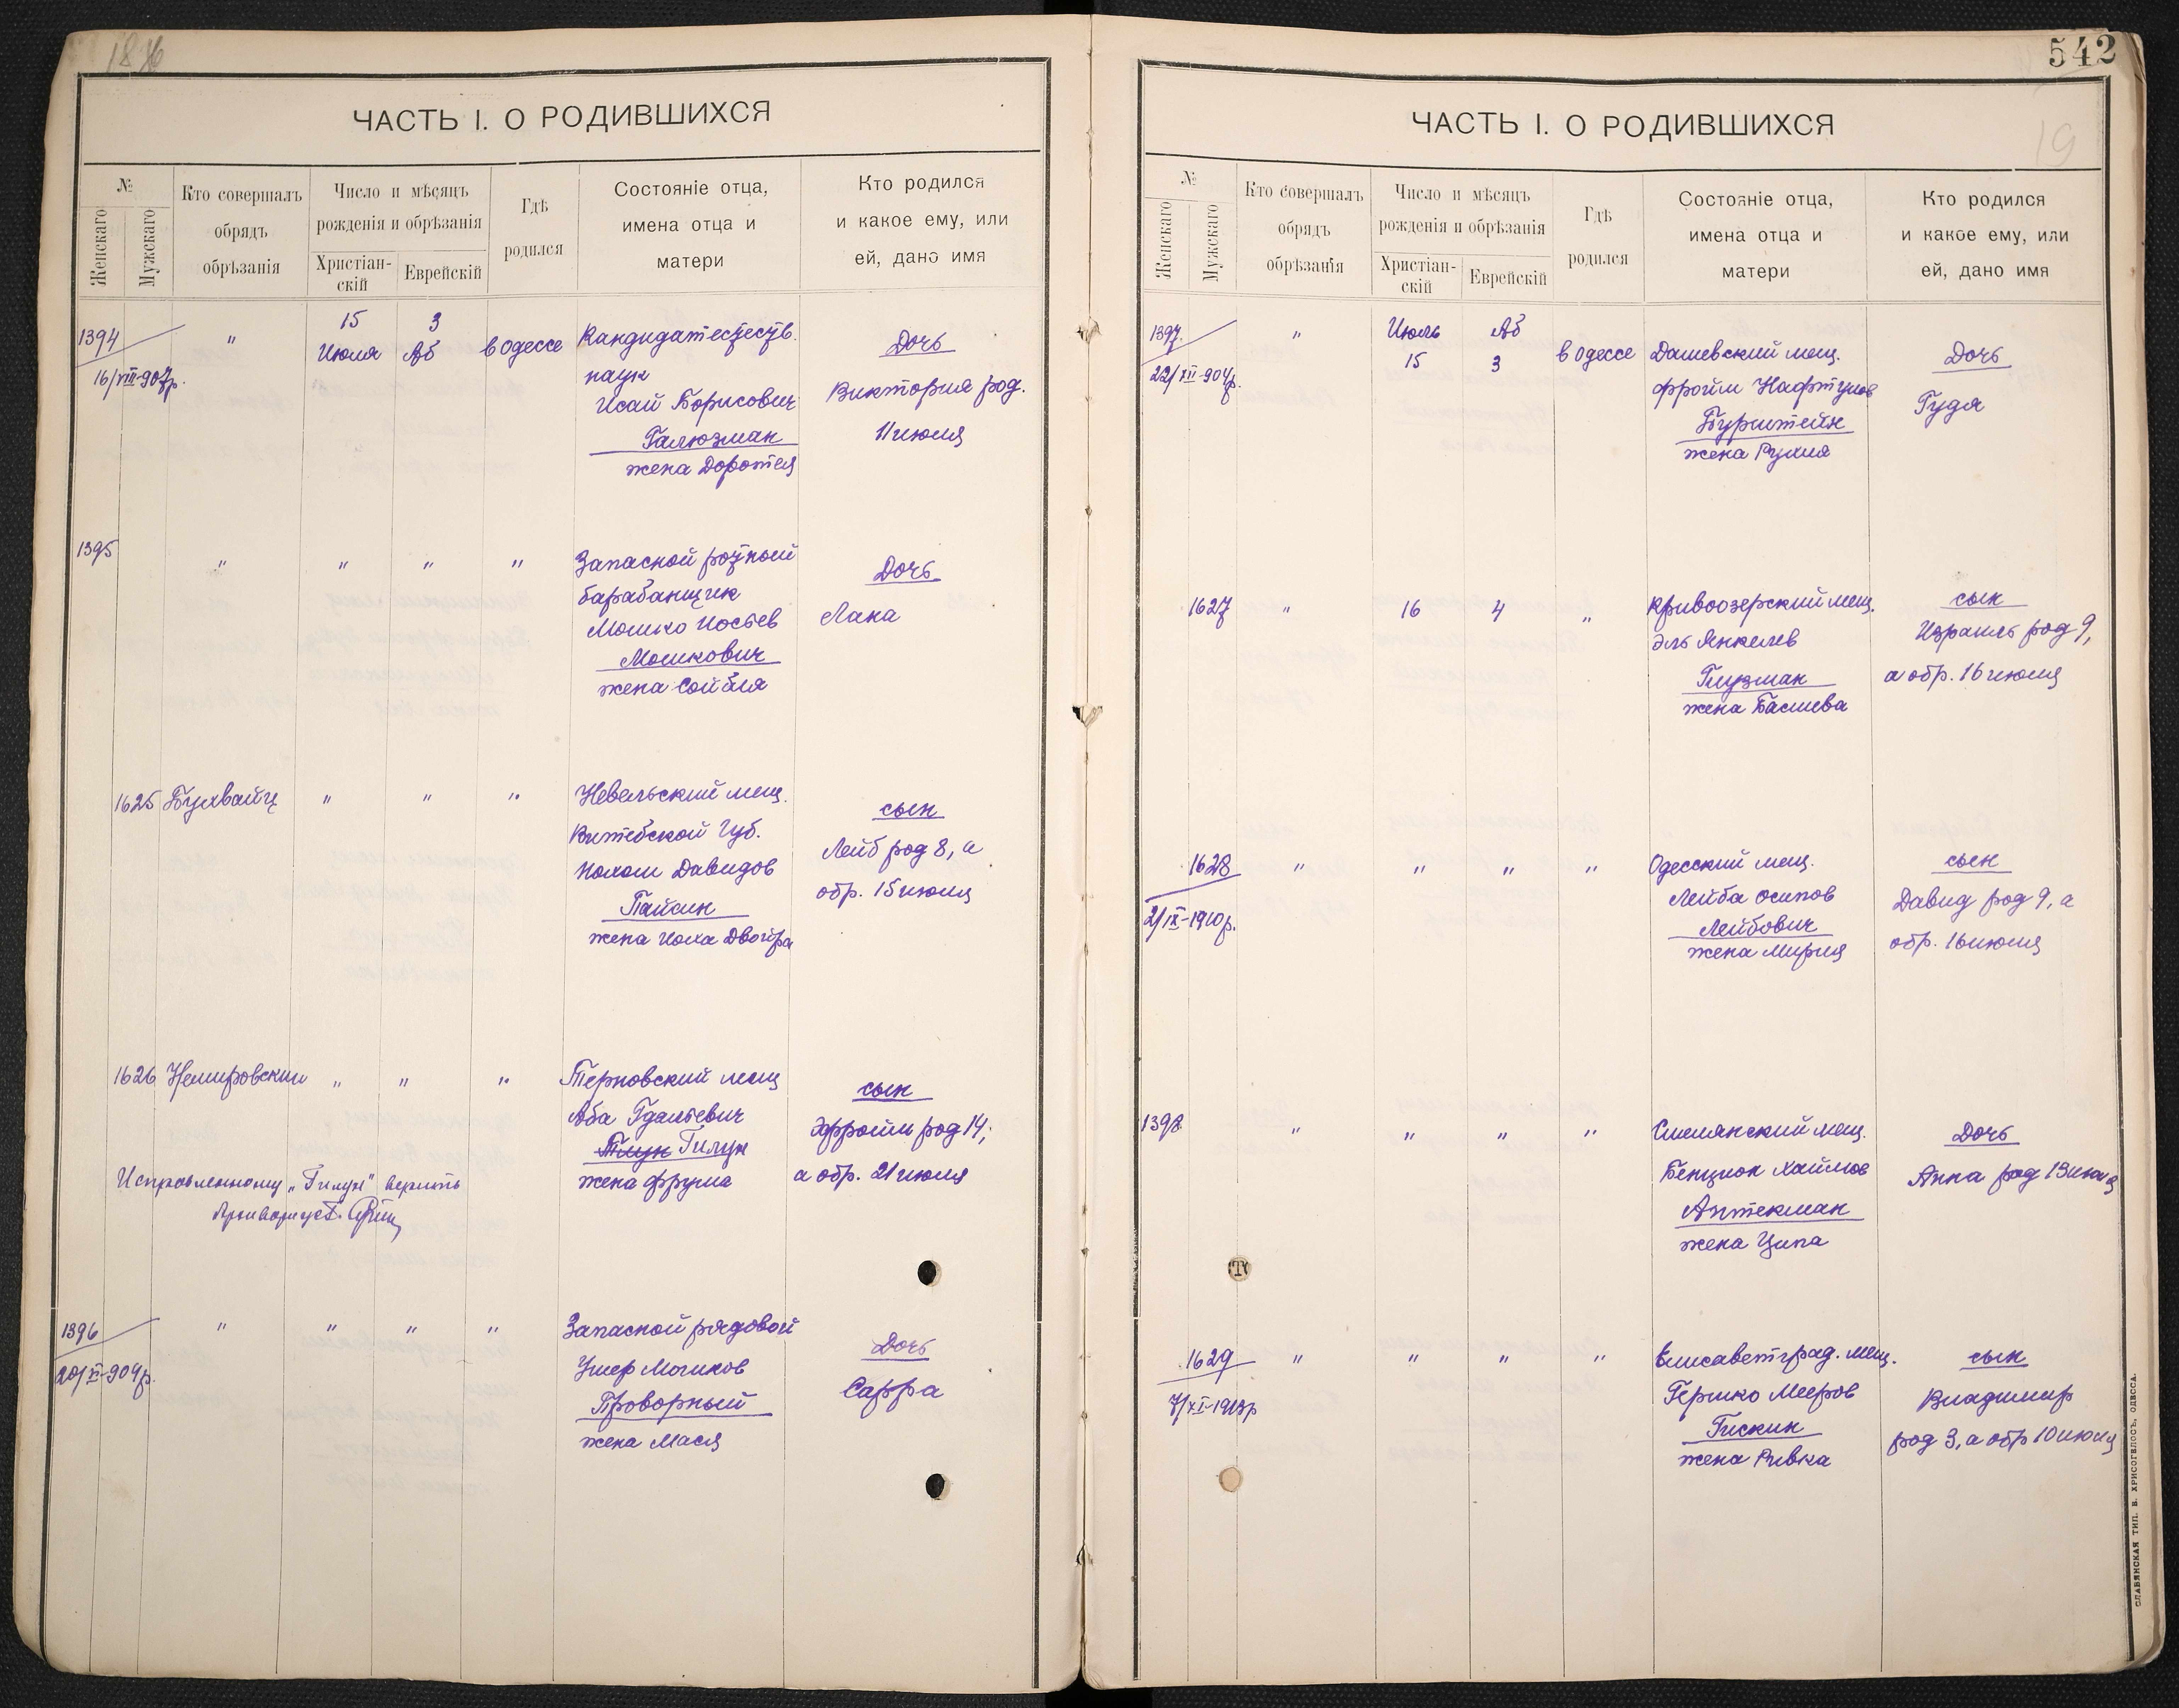 18
ЧАСТЬ I. О РОДИВШИХСЯ
№
Женскаго
Мужскаго
Кто совершалъ
обрядъ
обрѣзанія
Число и мѣсяцъ
рожденія и обрѣзанія
Христіан-
скій
Еврейскій
Гдѣ
родился
Состояніе отца,
имена отца и
матери
Кто родился
и какое ему, или
ей, дано имя
1394
16/VIII-907г.
"
15
Июля
3
Аб
в Одессе
Кандидат естеств.
наук
Исай Борисович
Галюзман
жена Доротея
Дочь
Виктория род.
11 июля
1395
" " " "
Запасной ротный
барабанщик
Мошко Иосьев
Мошкович
жена Сойбля
Дочь
Лана
1625 Бухвайц " " "
Невельский мещ.
Витебской губ.
Нохом Давидов
Пайкин
жена Иоха Двойра
сын
Лейб род 8, а
обр. 15 июля
1626 Немировский " " "
Терновский мещ
Аба Гдальевич
Гилун
жена Фрума
сын
Эфроим род 14,
а обр. 21 июля
Исправленному „Гилун" верить
1396
20/X-904г.
" " " "
Запасной рядовой
Ушер Мошков
Проворный
жена Мася
Дочь
Сарра
542
19
ЧАСТЬ I. О РОДИВШИХСЯ
№
Женскаго
Мужскаго
Кто совершалъ
обрядъ
обрѣзанія
Число и мѣсяцъ
рожденія и обрѣзанія
Христіан-
скій
Еврейскій
Гдѣ
родился
Состояніе отца,
имена отца и
матери
Кто родился
и какое ему, или
ей, дано имя
1397.
22/XII-904г.
"
Июль
15
Аб
3
в Одессе
Дашевский мещ.
Фройм Нафтулов
Бурштейн
жена Рухля
Дочь
Гудя
1627 " 16 4 "
Кривоозерский мещ.
Эль Янкелев
Глузман
жена Басшева
сын
Израиль род 9,
а обр. 16 июля
1628
2/IX-1910г.
" " " "
Одесский мещ.
Лейба Осипов
Лейбович
жена Мирия
сын
Давид род 9, а
обр. 16 июля
1398
" " " "
Смелянский мещ.
Бенцион Хаймов
Аптекман
жена Ципа
Дочь
Анна род 13 июля
1629
" " " "
Елисаветград. мещ.
Гершко Мееров
Гискин
жена Ривка
сын
Владимир
род 3, а обр 10 июля
СЛАВЯНСКАЯ ТИП. В. ХРИСОГЕЛОСЪ, ОДЕССА.